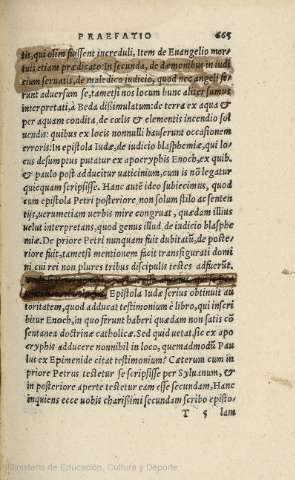 PRAEFATIO 665
tis, qui olim fuissent increduli, Item de Euangelio mor
tuis etiam prædicato: In secunda, de dæmonibus in iudi
cium seruatis, de maledico iudicio, quod nec angeli fer
runt aduersum se, tametsi nos locum hunc aliter sumus
interpretati, à Beda dissimulatum: de terra ex aqua &
per aquam condita, de cœlis & elementis incendio sol
uendis: quibus ex locis nonnulli hauserunt occasionem
erroris: In epistola Iudæ, de iudicio blasphemiæ, qui lo
cus desumptus putatur ex apocryphis Enoch, ex quib.
& paulo post adducitur uaticinium, cum is nō legatur
quicquam scripsisse. Hanc autē ideo subiecimus, quod
cum epistola Petri posteriore, non solum stilo ac senten
tijs, uerumetiam uerbis mire congruat, quædam illius
uelut interpretans, quod genus illud, de iudicio blasphe
miæ. De priore Petri nunquam fuit dubitatū, de poste-
riore fuit, tametsi mentionem facit transfigurati domi
ni, cui rei non plures tribus discipulis testes adfuerūt.
Epistola Iudæ serius obtinuit au
toritatem, quod adducat testimonium è libro, qui inscri
bitur Enoch, in quo ferunt haberi quædam non satis cō
sentanea doctrinæ catholicæ. Sed quid uetat, sic ex apo
cryphis adducere nonnihil in loco, quemadmodū Pau
lus ex Epimenide citat testimonium? Cæterum cum in
priore Petrus testetur se scripsisse per Syluanum, &
in posteriore aperte testetur eam esse secundam, Hanc
inquiens ecce uobis charissimi secundam scribo episto-
T 5 lam
Ministerio de Educación, Cultura y Deporte